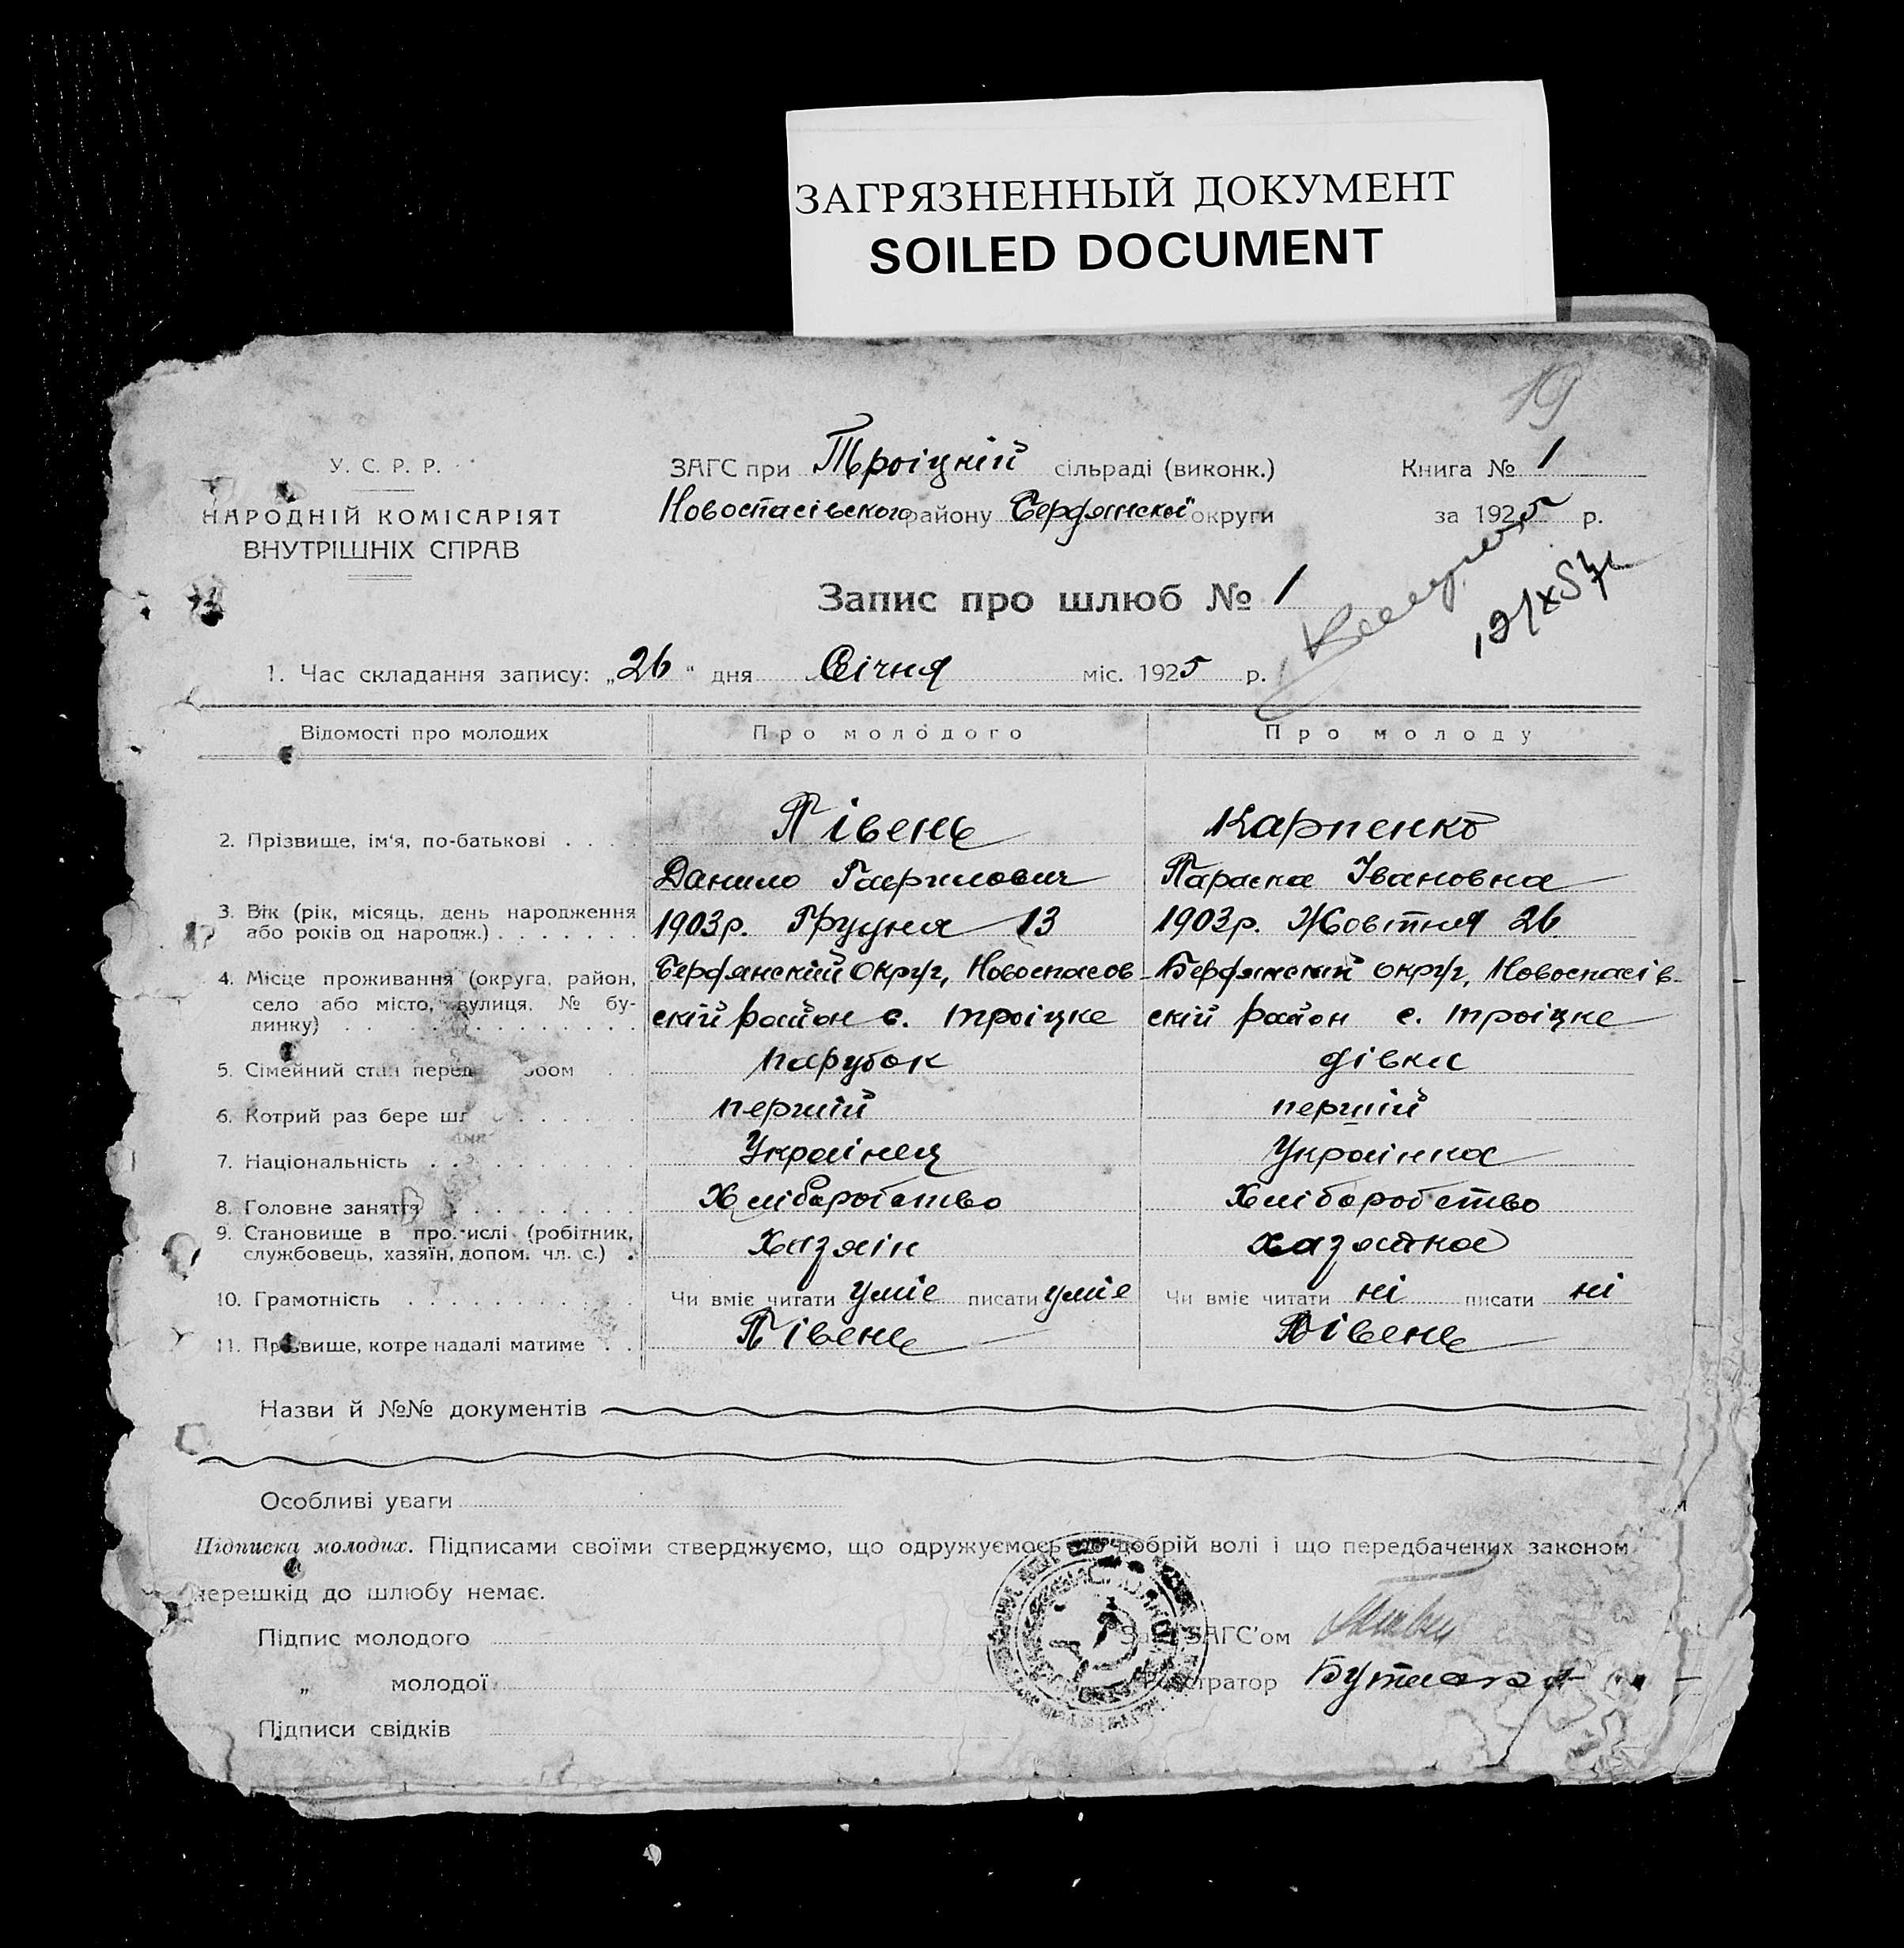 ЗАГРЯЗНЕННЫЙ ДОКУМЕНТ
SOILED DOCUMENT
19
У. С. Р. Р.
НАРОДНІЙ КОМІСАРІЯТ
ВНУТРІШНІХ СПРАВ
ЗАГС при Троіцкій сільраді (виконк.)
Новоспасівського району Бердянської округи
Книга № 1
за 1925 р.
Запис про шлюб № 1
1. Час складання запису: „26“ дня Січня міс. 1925 р.
Відомості про молодих Про молодого Про молоду
2. Прізвище, ім'я, по-батькові Півень Карпенко
Данило Гаврилович Параска Івановна
3. Вік (рік, місяць, день народження
або років од народж.) 1903р. Грудня 13 1903р. Жовтня 26
4. Місце проживання (округа, район, Бердянский округ, Новоспасов- Бердянский округ, Новоспасів-
село або місто, вулиця, № бу-
динку) скій район с. троіцке скій район с. троіцке
5. Сімейний стан перед парубок дівка
6. Котрий раз бере першій першій
7. Національність Украінец Украінка
8. Головне заняття Хліборобство Хліборобство
9. Становище в (робітник,
службовець, хазяїн, допом. чл. с.) Хазяін хазяйка
10. Грамотність Чи вміє читати уміє писати уміє Чи вміє читати ні писати ні
11. Прізвище, котре надалі матиме Півень Півень
Назви й №№ документів
Особливі уваги
Підписка молодих. Підписами своїми стверджуємо, що одружуємось по добрій волі і що передбачених законом
перешкід до шлюбу немає.
Підпис молодого
„ молодої
Підписи свідків
Зав. ЗАГС'ом
Реєстратор